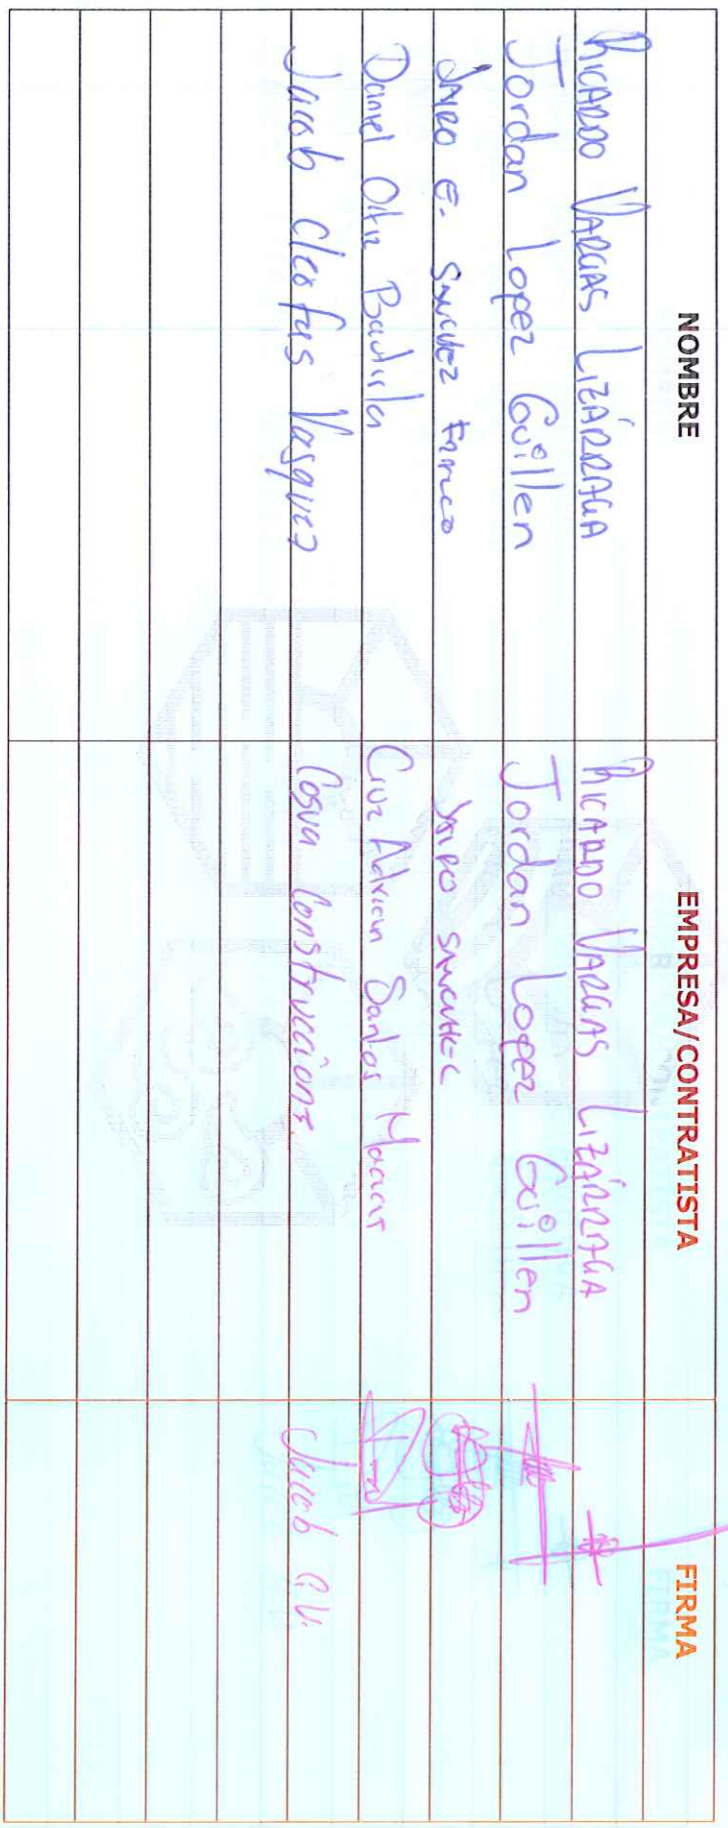 NOMBRE EMPRESA/CONTRATISTA FIRMA
RICARDO VARGAS LIZÁRRAGA RICARDO VARGAS LIZÁRRAGA
Jordan Lopez Guillen Jordan Lopez Guillen
E. SANCHEZ
Daniel Ortiz Bautista Cruz Adrian Santos Macias
Jacob Cleofas Vasquez Cosva Construccions Jacob C.V.